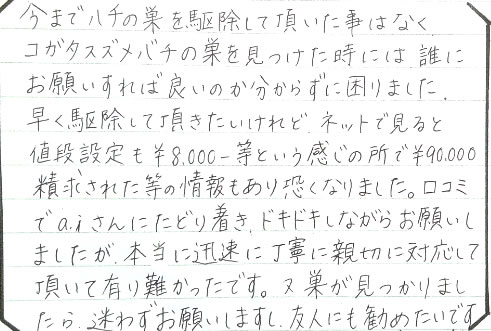 今までハチの巣を駆除して頂いた事はなく
コガタスズメバチの巣を見つけた時には 誰に
お願いすれば良いのか分からずに困りました。
早く駆除して頂きたいけれど、ネットで見ると
値段設定も¥8,000-等という感じの所で¥90.000
積求された等の情報もあり恐くなりました。口コミ
でa.iさんにたどり着き、ドキドキしながらお願いし
ましたが、本当に迅速に丁寧に親切に対応して
頂いて有り難かったです。又巣が見つかりまし
たら、迷わずお願いしますし、友人にも勧めたいです